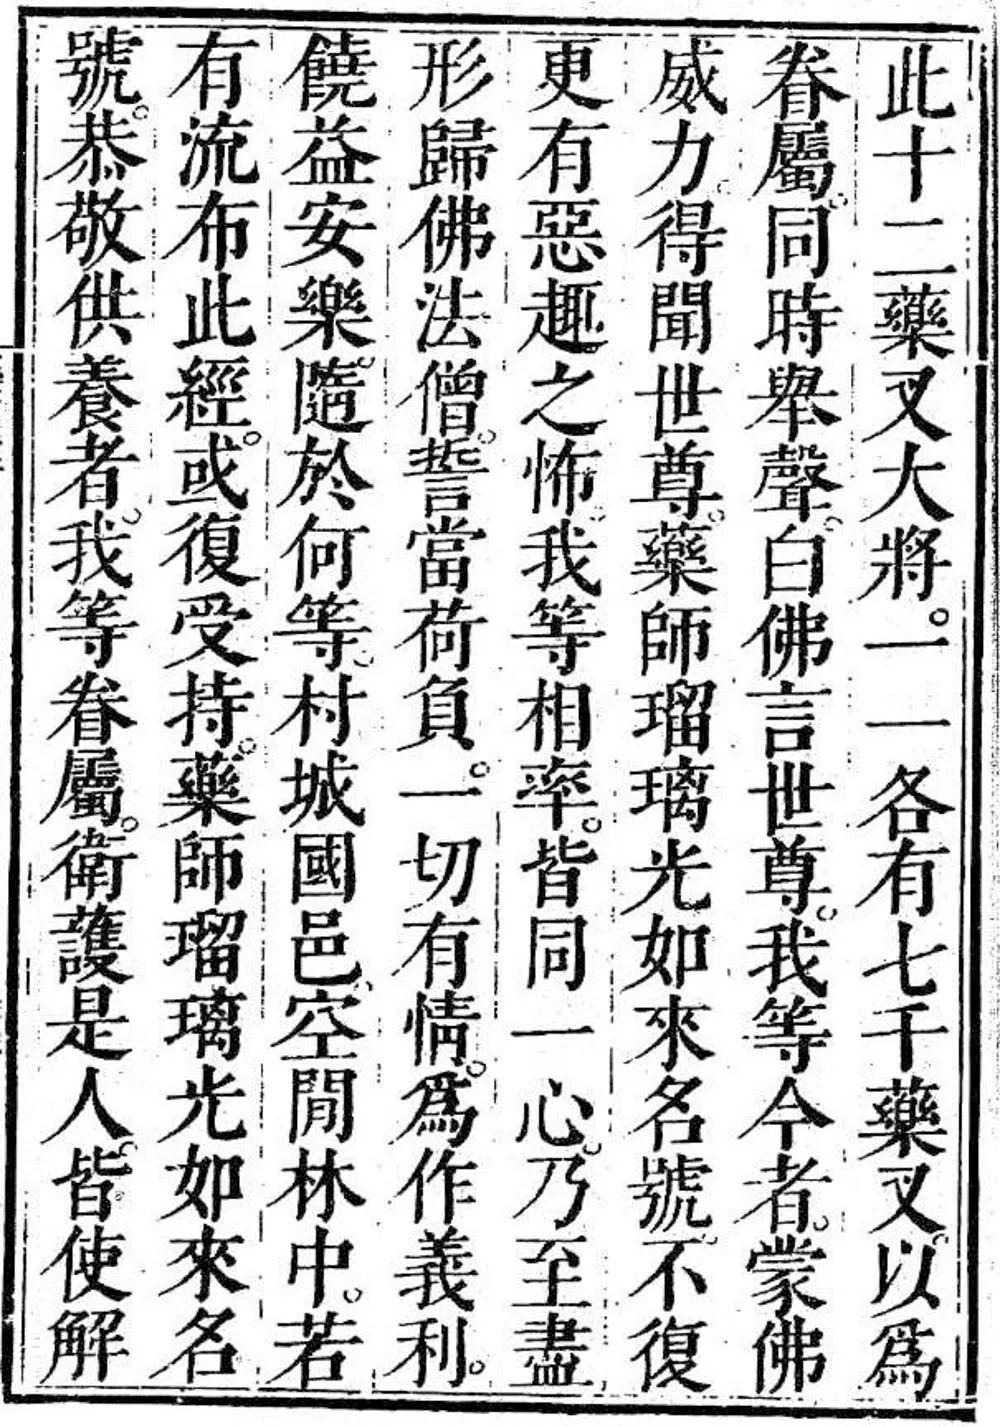 此十二藥叉大將。一一各有七千藥叉。以爲
眷屬。同時舉聲。白佛言世尊。我等今者。蒙佛
威力。得聞世尊。藥師瑠璃光如來名號。不復
更有惡趣之怖。我等相率。皆同一心。乃至盡
形歸佛法僧。誓當荷負。一切有情。爲作義利。
饒益安樂。隨於何等。村城國邑。空閒林中。若
有流布此經。或復受持。藥師瑠璃光如來名
號。恭敬供養者。我等眷屬。衛護是人。皆使解